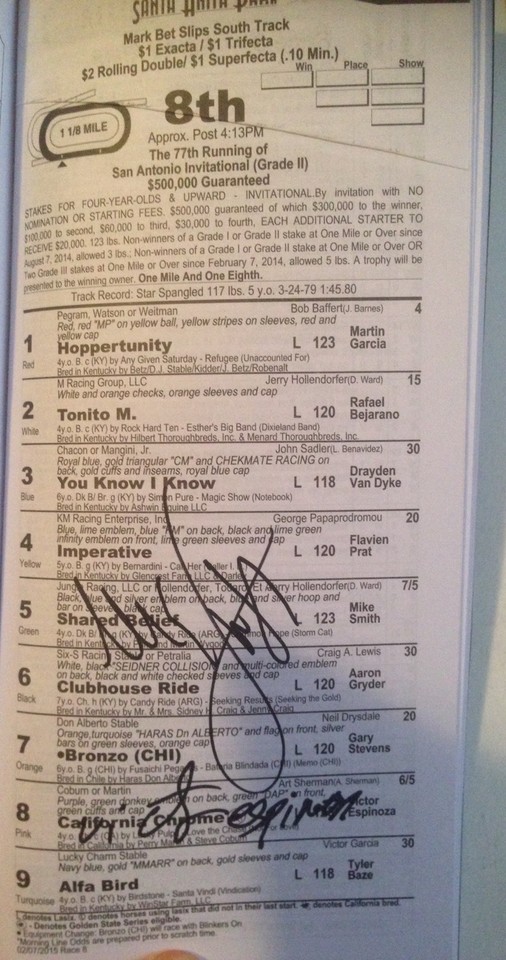 SANTA ANITA PARK
Mark Bet Slips South Track
$1 Exacta / $1 Trifecta
$2 Rolling Double/ $1 Superfecta (.10 Min.)
Win Place Show
8th
1 1/8 MILE
Approx. Post 4:13PM
The 77th Running of
San Antonio Invitational (Grade II)
$500,000 Guaranteed
STAKES FOR FOUR-YEAR-OLDS & UPWARD - INVITATIONAL.By invitation with NO
NOMINATION OR STARTING FEES. $500,000 guaranteed of which $300,000 to the winner,
$100,000 to second, $60,000 to third, $30,000 to fourth, EACH ADDITIONAL STARTER TO
RECEIVE $20,000. 123 lbs. Non-winners of a Grade I or Grade II stake at One Mile or Over since
August 7, 2014, allowed 3 lbs.; Non-winners of a Grade I or Grade II stake at One Mile or Over OR
Two Grade III stakes at One Mile or Over since February 7, 2014, allowed 5 lbs. A trophy will be
presented to the winning owner. One Mile And One Eighth.
Track Record: Star Spangled 117 lbs. 5 y.o. 3-24-79 1:45.80
Pegram, Watson or Weitman Bob Baffert(J. Barnes) 4
Red, red "MP" on yellow ball, yellow stripes on sleeves, red and
yellow cap
1 Hoppertunity L 123 Martin Garcia
Red 4y.o. B. c (KY) by Any Given Saturday - Refugee (Unaccounted For)
Bred in Kentucky by Betz/D.J. Stable/Kidder/J. Betz/Robenalt
M Racing Group, LLC Jerry Hollendorfer(D. Ward) 15
White and orange checks, orange sleeves and cap
2 Tonito M. L 120 Rafael Bejarano
White 4y.o. B. c (KY) by Rock Hard Ten - Esther's Big Band (Dixieland Band)
Bred in Kentucky by Hilbert Thoroughbreds, Inc. & Menard Thoroughbreds, Inc.
Chacon or Mangini, Jr. John Sadler(L. Benavidez) 30
Royal blue, gold triangular "CM" and CHEKMATE RACING on
back, gold cuffs and inseams, royal blue cap
3 You Know I Know L 118 Drayden Van Dyke
Blue 6y.o. DK B/ Br. g (KY) by Simon Pure - Magic Show (Notebook)
Bred in Kentucky by Ashwin Equine LLC
KM Racing Enterprise, Inc. George Papaprodromou 20
Blue, lime emblem, blue "KM" on back, black and lime green
infinity emblem on front, lime green sleeves and cap
4 Imperative L 120 Flavien Prat
Yellow 5y.o. B. g (KY) by Bernardini - Call Her
Bred in Kentucky by Glencrest Farm LLC & Darley
Jungle Racing, LLC or Hollendorfer, Et Jerry Hollendorfer(D. Ward) 7/5
Black, blue and silver emblem on back, blue and silver hoop and
bar on sleeves, black cap
5 Shared Belief L 123 Mike Smith
Green 4y.o. Dk B/ g (KY) by Candy Ride (ARG) Hope (Storm Cat)
Bred in Kentucky by
Six-S Racing Stable or Petralia Craig A. Lewis 30
White, black "SEIDNER COLLISION" and multi-colored emblem
on back, black and white checked sleeves and cap
6 Clubhouse Ride L 120 Aaron Gryder
Black 7y.o. Ch. h (KY) by Candy Ride (ARG) - Seeking Results (Seeking the Gold)
Bred in Kentucky by Mr. & Mrs. Sidney H. Craig & Jenny Craig
Don Alberto Stable Neil Drysdale 20
Orange,turquoise "HARAS Dn ALBERTO" and flag on front, silver
bars on green sleeves, orange cap
7 •Bronzo (CHI) L 120 Gary Stevens
Orange 6y.o. B. g (CHI) by Fusaichi Pegasus - Bateria Blindada (CHI) (Memo (CHI))
Bred in Chile by Haras Don Alberto
Coburn or Martin Art Sherman(A. Sherman) 6/5
Purple, green donkey emblem on back, green "DAP" on front,
green cuffs and cap
8 California Chrome Victor Espinoza
Pink 4y.o. (CA) by Lucky Pulpit - Love the
Bred in California by Perry Martin & Steve Coburn
Lucky Charm Stable Victor Garcia 30
Navy blue, gold "MMARR" on back, gold sleeves and cap
9 Alfa Bird L 118 Tyler Baze
Turquoise 4y.o. B. c (KY) by Birdstone - Santa Vindi (Vindication)
Bred in Kentucky by WinStar Farm, LLC
L denotes Lasix. © denotes horses using lasix that did not in their last start. denotes California bred.
- Denotes Golden State Series eligible.
• Equipment Change: Bronzo (CHI) will race with Blinkers On
*Morning Line Odds are prepared prior to scratch time.
02/07/2015 Race 8